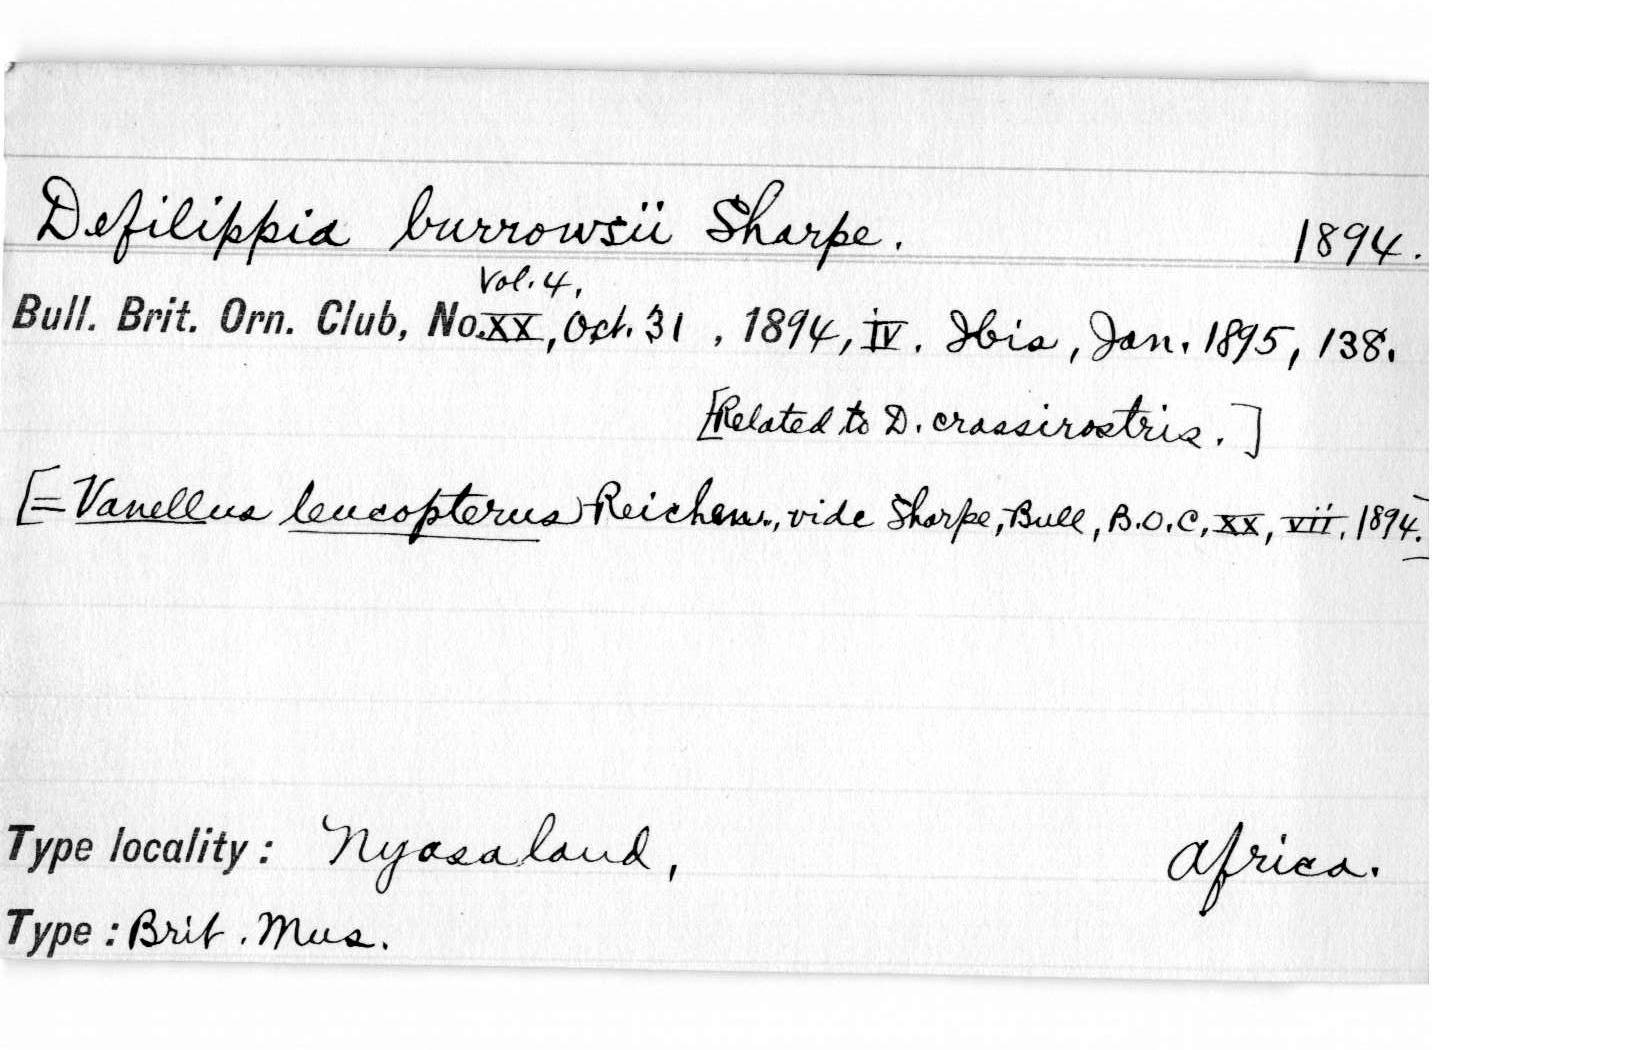 Defilippia burrowsii Sharpe. 1894.
Vol. 4,
Bull. Brit. Orn. Club, No. XX, Oct. 31, 1894, iv. Ibis, Jan. 1895, 138.
[Related to D. crassirostris.]
[= Vanellus leucopterus Reichenw., vide Sharpe, Bull, B.O.C, XX, vii, 1894.]
Type locality: Nyasaland, Africa.
Type: Brit. Mus.